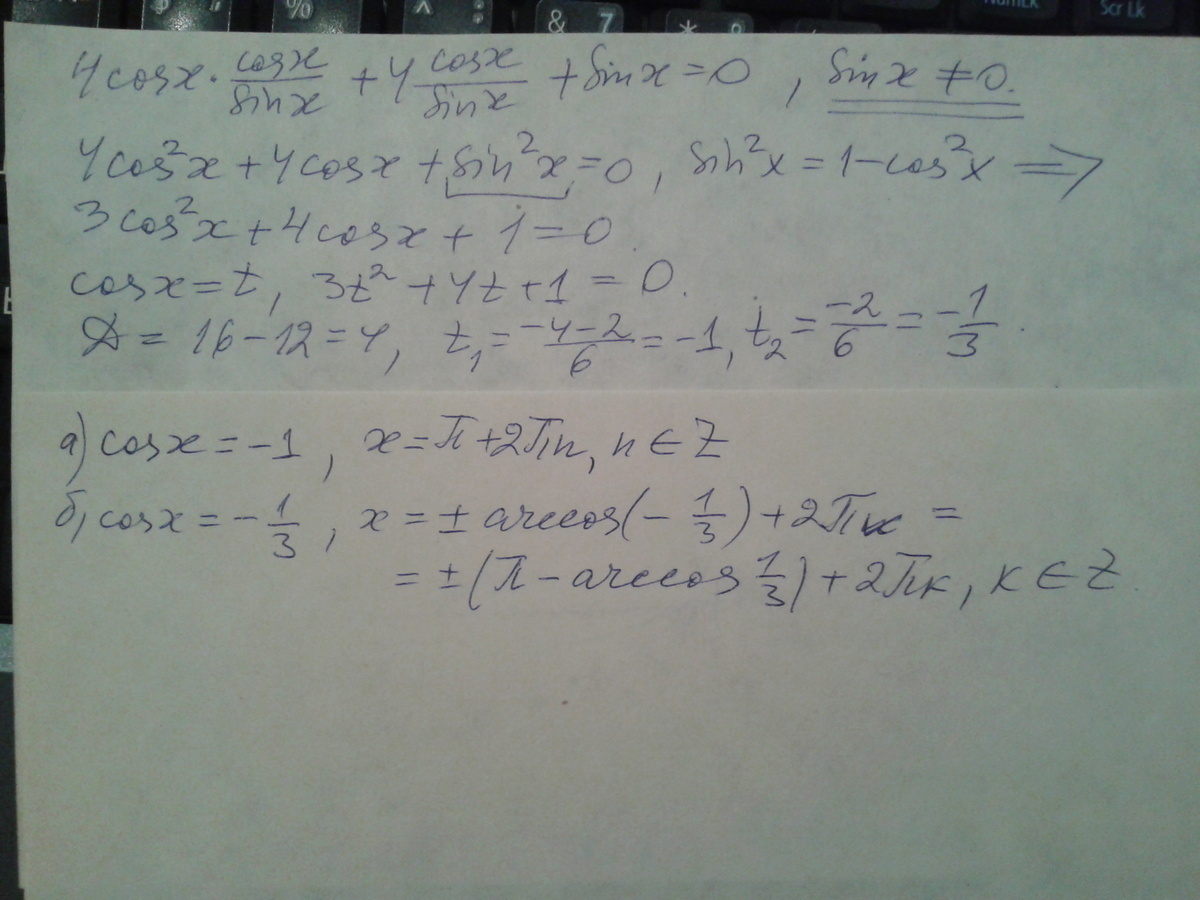 4cosx · cosx/sinx + 4 cosx/sinx + sinx = 0 , sinx ≠ 0.
4cos²x + 4cosx + sin²x = 0 , sin²x = 1 - cos²x ⇒
3cos²x + 4cosx + 1 = 0.
cosx = t, 3t² + 4t + 1 = 0.
D = 16 - 12 = 4, t₁ = (-4-2)/6 = -1, t₂ = -2/6 = -1/3.
а) cosx = -1 , x = π + 2πn, n ∈ Z
б, cosx = -1/3 , x = ± arccos(-1/3) + 2πк =
= ±(π - arccos 1/3) + 2πк, к ∈ Z.
& 7
%
^
*
NumLk
Scr Lk